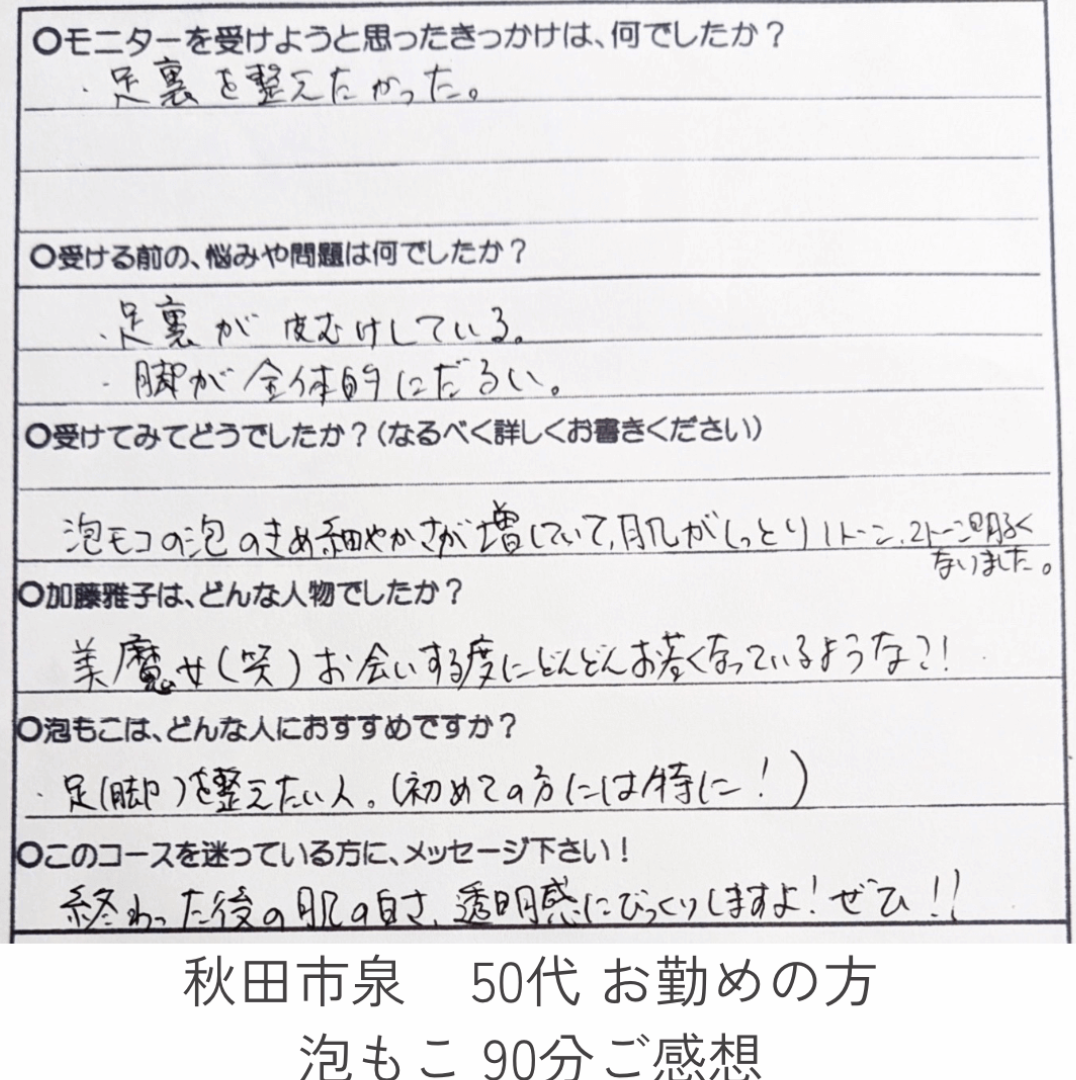 〇モニターを受けようと思ったきっかけは、何でしたか？
・足裏を整えたかった。
〇受ける前の、悩みや問題は何でしたか？
・足裏が皮むけしている。
・脚が全体的にだるい。
〇受けてみてどうでしたか？（なるべく詳しくお書きください）
泡モコの泡のきめ細やかさが増していて、肌がしっとり1トーン、2トーン明るく
なりました。
〇加藤雅子は、どんな人物でしたか？
美魔女（笑）お会いする度にどんどんお若くなっているような？！
〇泡もこは、どんな人におすすめですか？
・足（脚）を整えたい人。（初めての方には特に！）
〇このコースを迷っている方に、メッセージ下さい！
終わった後の肌の白さ、透明感にびっくりしますよ！ぜひ！！
秋田市泉　50代 お勤めの方
泡もこ 90分ご感想